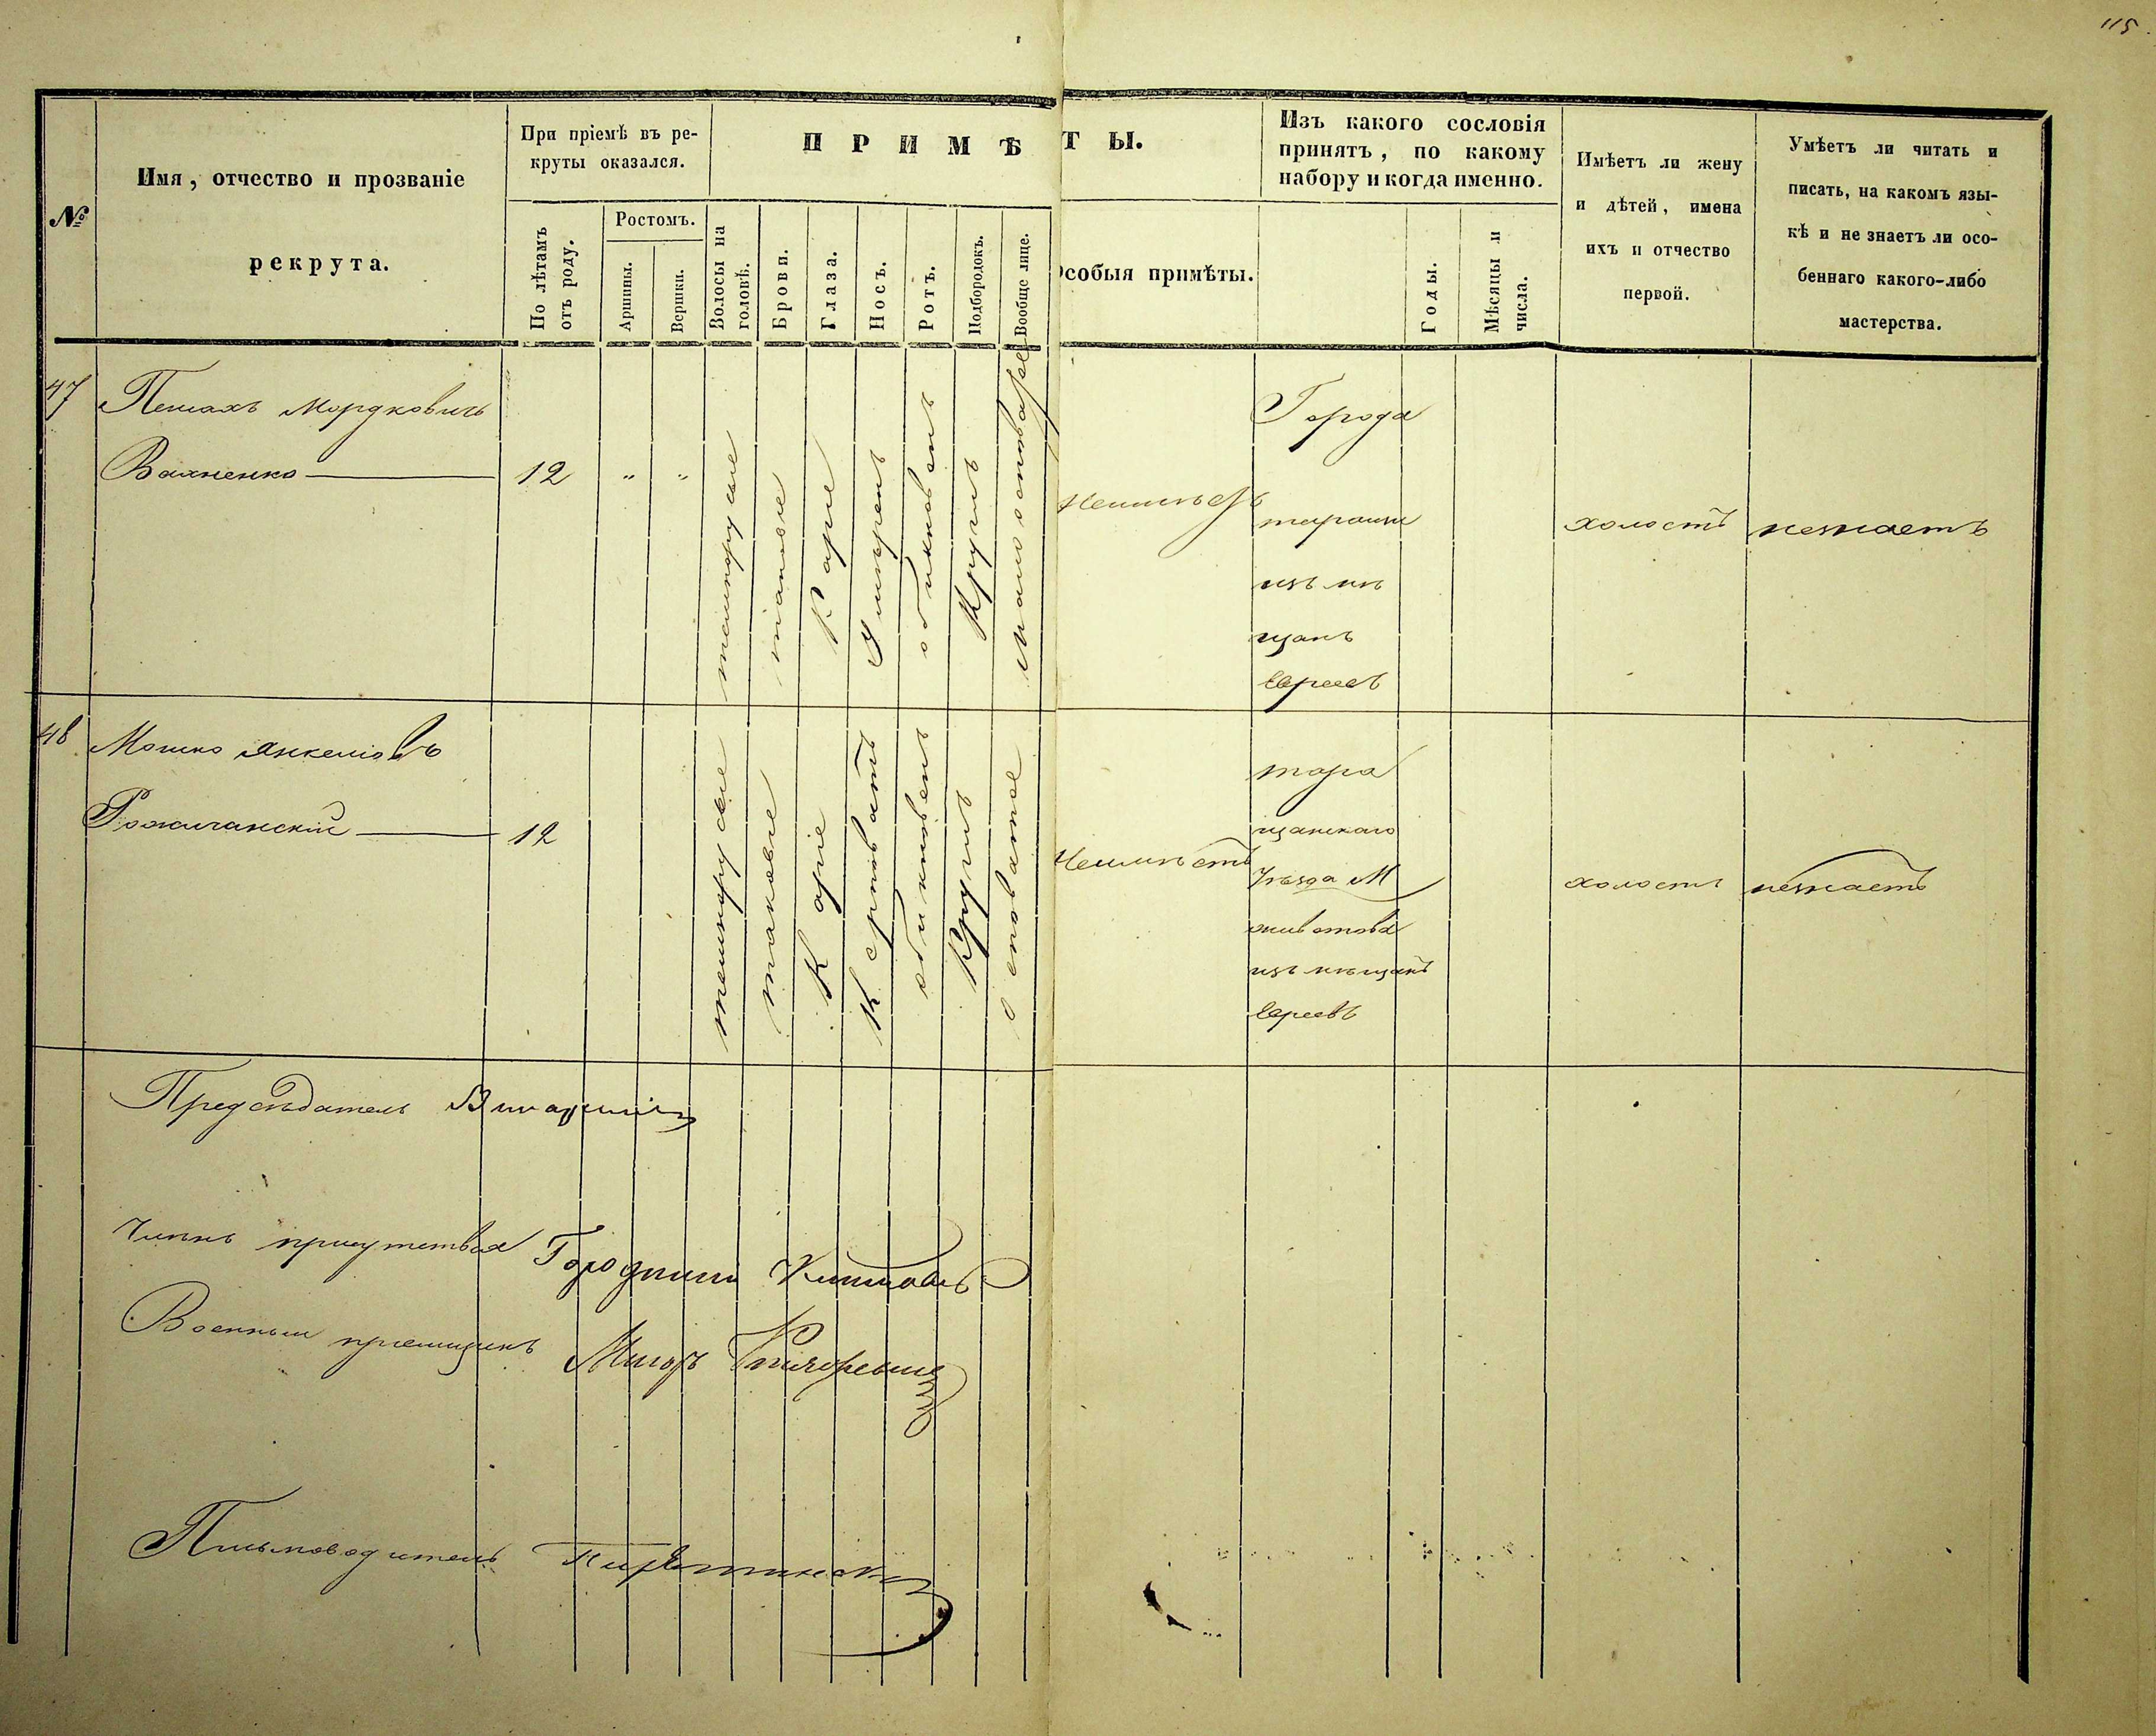 115
№
Имя, отчество и прозваніе
рекрута.
При пріемѣ въ ре-
круты оказался.
По лѣтамъ
отъ роду.
Ростомъ.
Аршины.
Вершки.
ПРИМѢТЫ.
Волосы на
головѣ.
Брови.
Глаза.
Носъ.
Ротъ.
Подбородокъ.
Вообще лице.
Особыя примѣты.
Изъ какого сословія
принятъ, по какому
набору и когда именно.
Годы.
Мѣсяцы и
числа.
Имѣетъ ли жену
и дѣтей, имена
ихъ и отчество
первой.
Умѣетъ ли читать и
писать, на какомъ язы-
кѣ и не знаетъ ли осо-
беннаго какого-либо
мастерства.
47
Пейсахъ Мордковичъ
Вахненко
12
" "
темнорусые
таковые
Карие
Умѣрен
обикновен
Кругл
Малоостоватое
Неимѣетъ
Города
таращи
изъ мѣ
щанъ
евреевъ
холостъ
незнаетъ
48
Мошко Янкеліовъ
12
темнорусые
таковые
Каріе
обикновен
Кругл
Неимѣетъ
тара
щанскаго
Уѣзда М
животова
изъ мѣщанъ
евреевъ
холостъ
незнаетъ
Предсѣдатель
Членъ присутствія Городничій
Военный пріемщикъ Маіоръ
Письмоводитель